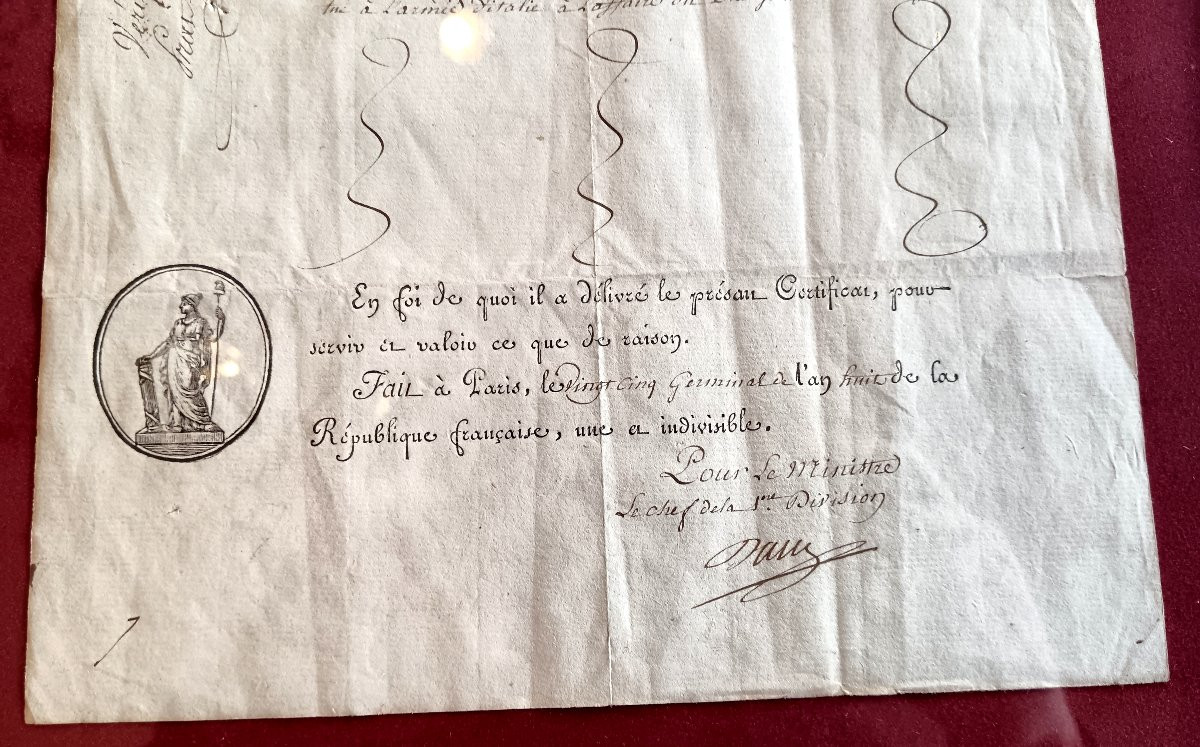 tué à L'armée d'italie à L'affaire du
En foi de quoi il a délivré le présent Certificat, pour
servir et valoir ce que de raison.
Fait à Paris, le Vingt Cinq Germinal de l'an huit de la
République française, une et indivisible.
Pour Le Ministre
Le chef de la 1re Division